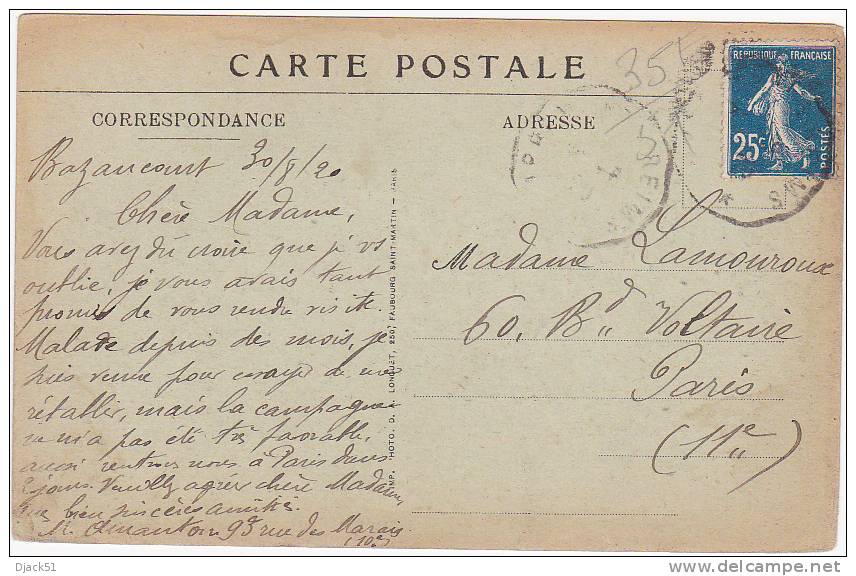 CARTE POSTALE
CORRESPONDANCE
ADRESSE
355
REPUBLIQUE FRANÇAISE
25c
POSTES
REIMS
Bazancourt 30/8/20
Chère Madame,
Vous avez dû croire que je vs
oublie, je vous avais tant
promis de vous rendre visite.
Malade depuis des mois, je
suis venue pour essayer de me
rétablir, mais la campagne
ne m'a pas été très favorable,
aussi rentrons nous à Paris dans
jours. Veuillez agréer chère Madame,
bien sincères amitiés.
M. Amanton 93 rue des Marais
(10e)
Madame Lamouroux
60, Bd Voltaire
Paris
(11e)
IMP. PHOTO. D. A. LONGUET, 250, FAUBOURG SAINT-MARTIN - PARIS
Djack51
http://www.delcampe.net